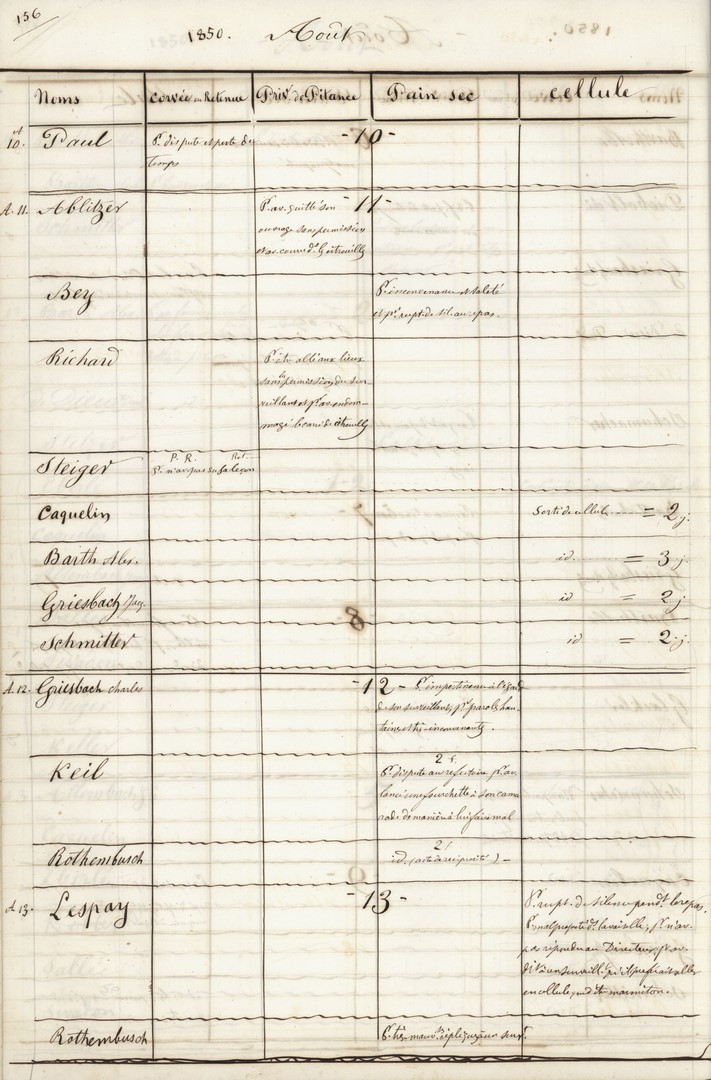 156
1850. Août
Noms Corvée ou Retenue Priv. de Pitance Pain sec cellule
- 10 -
At 10. Paul Pr. dispute et perte de
temps
- 11 -
A. 11. Ablitzer Pr. av. quitté son
ouvrage sans permission
et av. couru dt.
Bey Pr. inconvenance et saleté
et pr. rupt. de sil. au repas.
Richard Pr. être allé aux lieux
sans la permission du sur
veillant et pr. av. endom-
magé le carré de
Steiger P. R. Ret.
Pr. n'av. pas su sa leçon
Caquelin Sorti de cellule = 2 j.
Barth Alex. id. = 3 j.
Griesbach Jaq. id = 2 j.
Schmitter id = 2 j.
- 12 -
A. 12. Griesbach charles Pr. impertinence à l'égard
de son surveillant, pr. paroles hau-
taines et très inconvenants.
Keil 2 f.
Pr. dispute au refectoire pr. av.
lancé une fourchette à son cama
rade de manière à lui faire mal
Rothembusch 2 f.
id. (acte de réciprocité) -
- 13 -
A 13. Lespay Pr. rupt. de silence pendt. le repas.
Pr. malpropreté dt. la vaiselle, pr. n'av.
pas répondu au Directeur, pr. av.
dit à un surveillt. qu'il préférait aller
en cellule, marmiton.
Rothembusch Pr. très mauv. réplique à un survt.